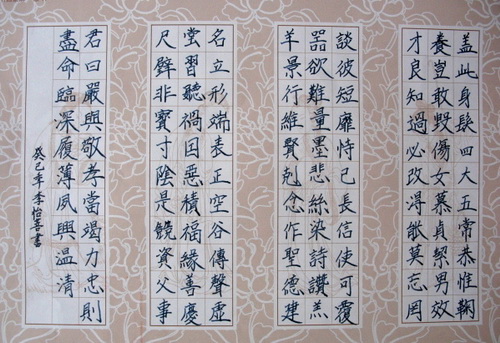 盖此身髮四大五常恭惟鞠
養豈敢毀傷女慕貞絜男效
才良知過必改得能莫忘罔
談彼短靡恃己長信使可覆
器欲難量墨悲絲染詩讚羔
羊景行維賢剋念作聖德建
名立形端表正空谷傳聲虛
堂習聽禍因惡積福緣善慶
尺璧非寶寸陰是競資父事
君曰嚴與敬孝當竭力忠則
盡命臨深履薄夙興温清
癸巳年李怡喜書